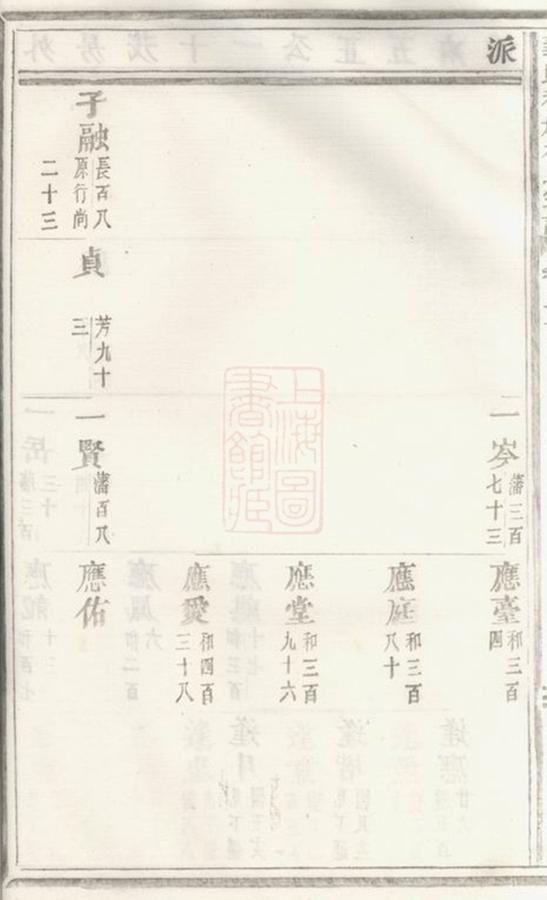 派
子融
長百八
原行尚
二十三
貞
芳九十
三
一岑
藩三百
七十三
一賢
藩百八
應臺
和三百
四
應庭
和三百
八十
應堂
和三百
九十六
應愛
和四百
三十八
應佑
上海圖
書館藏